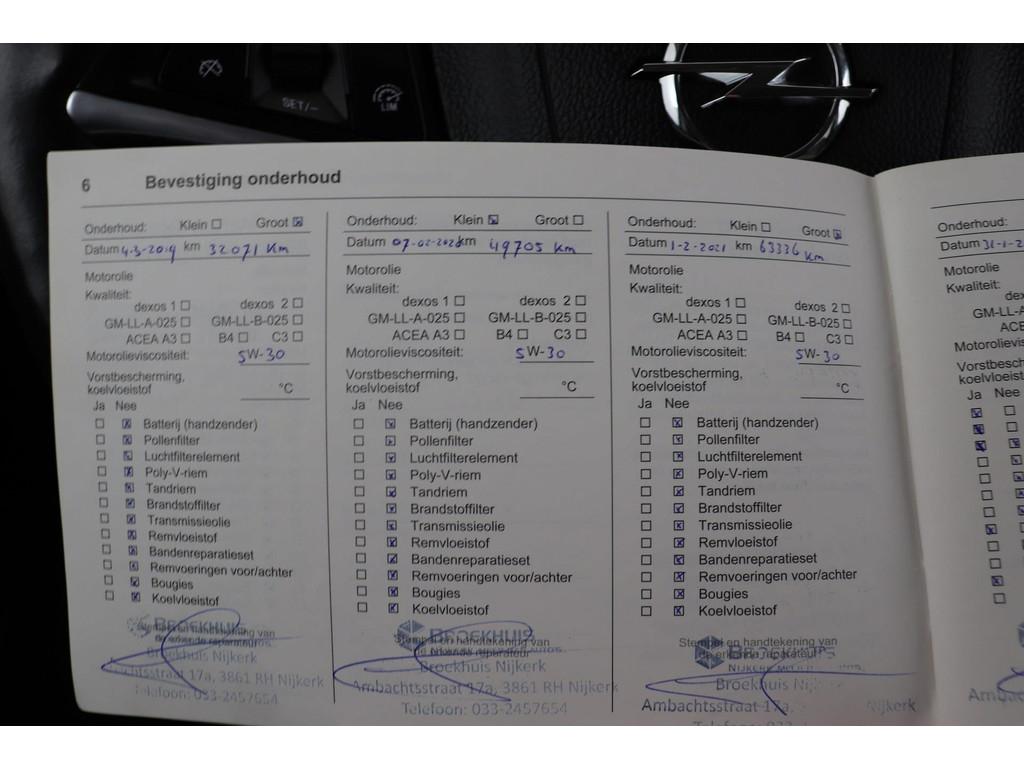 SET/-
LIM
6 Bevestiging onderhoud
Onderhoud: Klein Groot
Datum 4-3-2019 km 32071 Km
Motorolie
Kwaliteit:
dexos 1 dexos 2
GM-LL-A-025 GM-LL-B-025
ACEA A3 B4 C3
Motorolieviscositeit: 5W-30
Vorstbescherming,
koelvloeistof °C
Ja Nee
Batterij (handzender)
Pollenfilter
Luchtfilterelement
Poly-V-riem
Tandriem
Brandstoffilter
Transmissieolie
Remvloeistof
Bandenreparatieset
Remvoeringen voor/achter
Bougies
Koelvloeistof
Stempel en handtekening van
de erkende reparateur
BROEKHUIS
Broekhuis Nijkerk
Ambachtsstraat 17a, 3861 RH Nijkerk
Telefoon: 033-2457654
Onderhoud: Klein Groot
Datum 07-02-2020 km 49705 Km
Motorolie
Kwaliteit:
dexos 1 dexos 2
GM-LL-A-025 GM-LL-B-025
ACEA A3 B4 C3
Motorolieviscositeit: 5W-30
Vorstbescherming,
koelvloeistof °C
Ja Nee
Batterij (handzender)
Pollenfilter
Luchtfilterelement
Poly-V-riem
Tandriem
Brandstoffilter
Transmissieolie
Remvloeistof
Bandenreparatieset
Remvoeringen voor/achter
Bougies
Koelvloeistof
Stempel en handtekening van
de erkende reparateur
BROEKHUIS
Broekhuis Nijkerk
Ambachtsstraat 17a, 3861 RH Nijkerk
Telefoon: 033-2457654
Onderhoud: Klein Groot
Datum 1-2-2021 km 63336 Km
Motorolie
Kwaliteit:
dexos 1 dexos 2
GM-LL-A-025 GM-LL-B-025
ACEA A3 B4 C3
Motorolieviscositeit: 5W-30
Vorstbescherming,
koelvloeistof °C
Ja Nee
Batterij (handzender)
Pollenfilter
Luchtfilterelement
Poly-V-riem
Tandriem
Brandstoffilter
Transmissieolie
Remvloeistof
Bandenreparatieset
Remvoeringen voor/achter
Bougies
Koelvloeistof
Stempel en handtekening van
de erkende reparateur
BROEKHUIS
Broekhuis
Ambachtsstraat 17a, Nijkerk
Onderhoud:
Datum 31-1-2
Motorolie
Kwaliteit:
GM-LL-A
ACE
Motorolievis
Vorstbesche
koelvloeist
Ja Nee
Amba